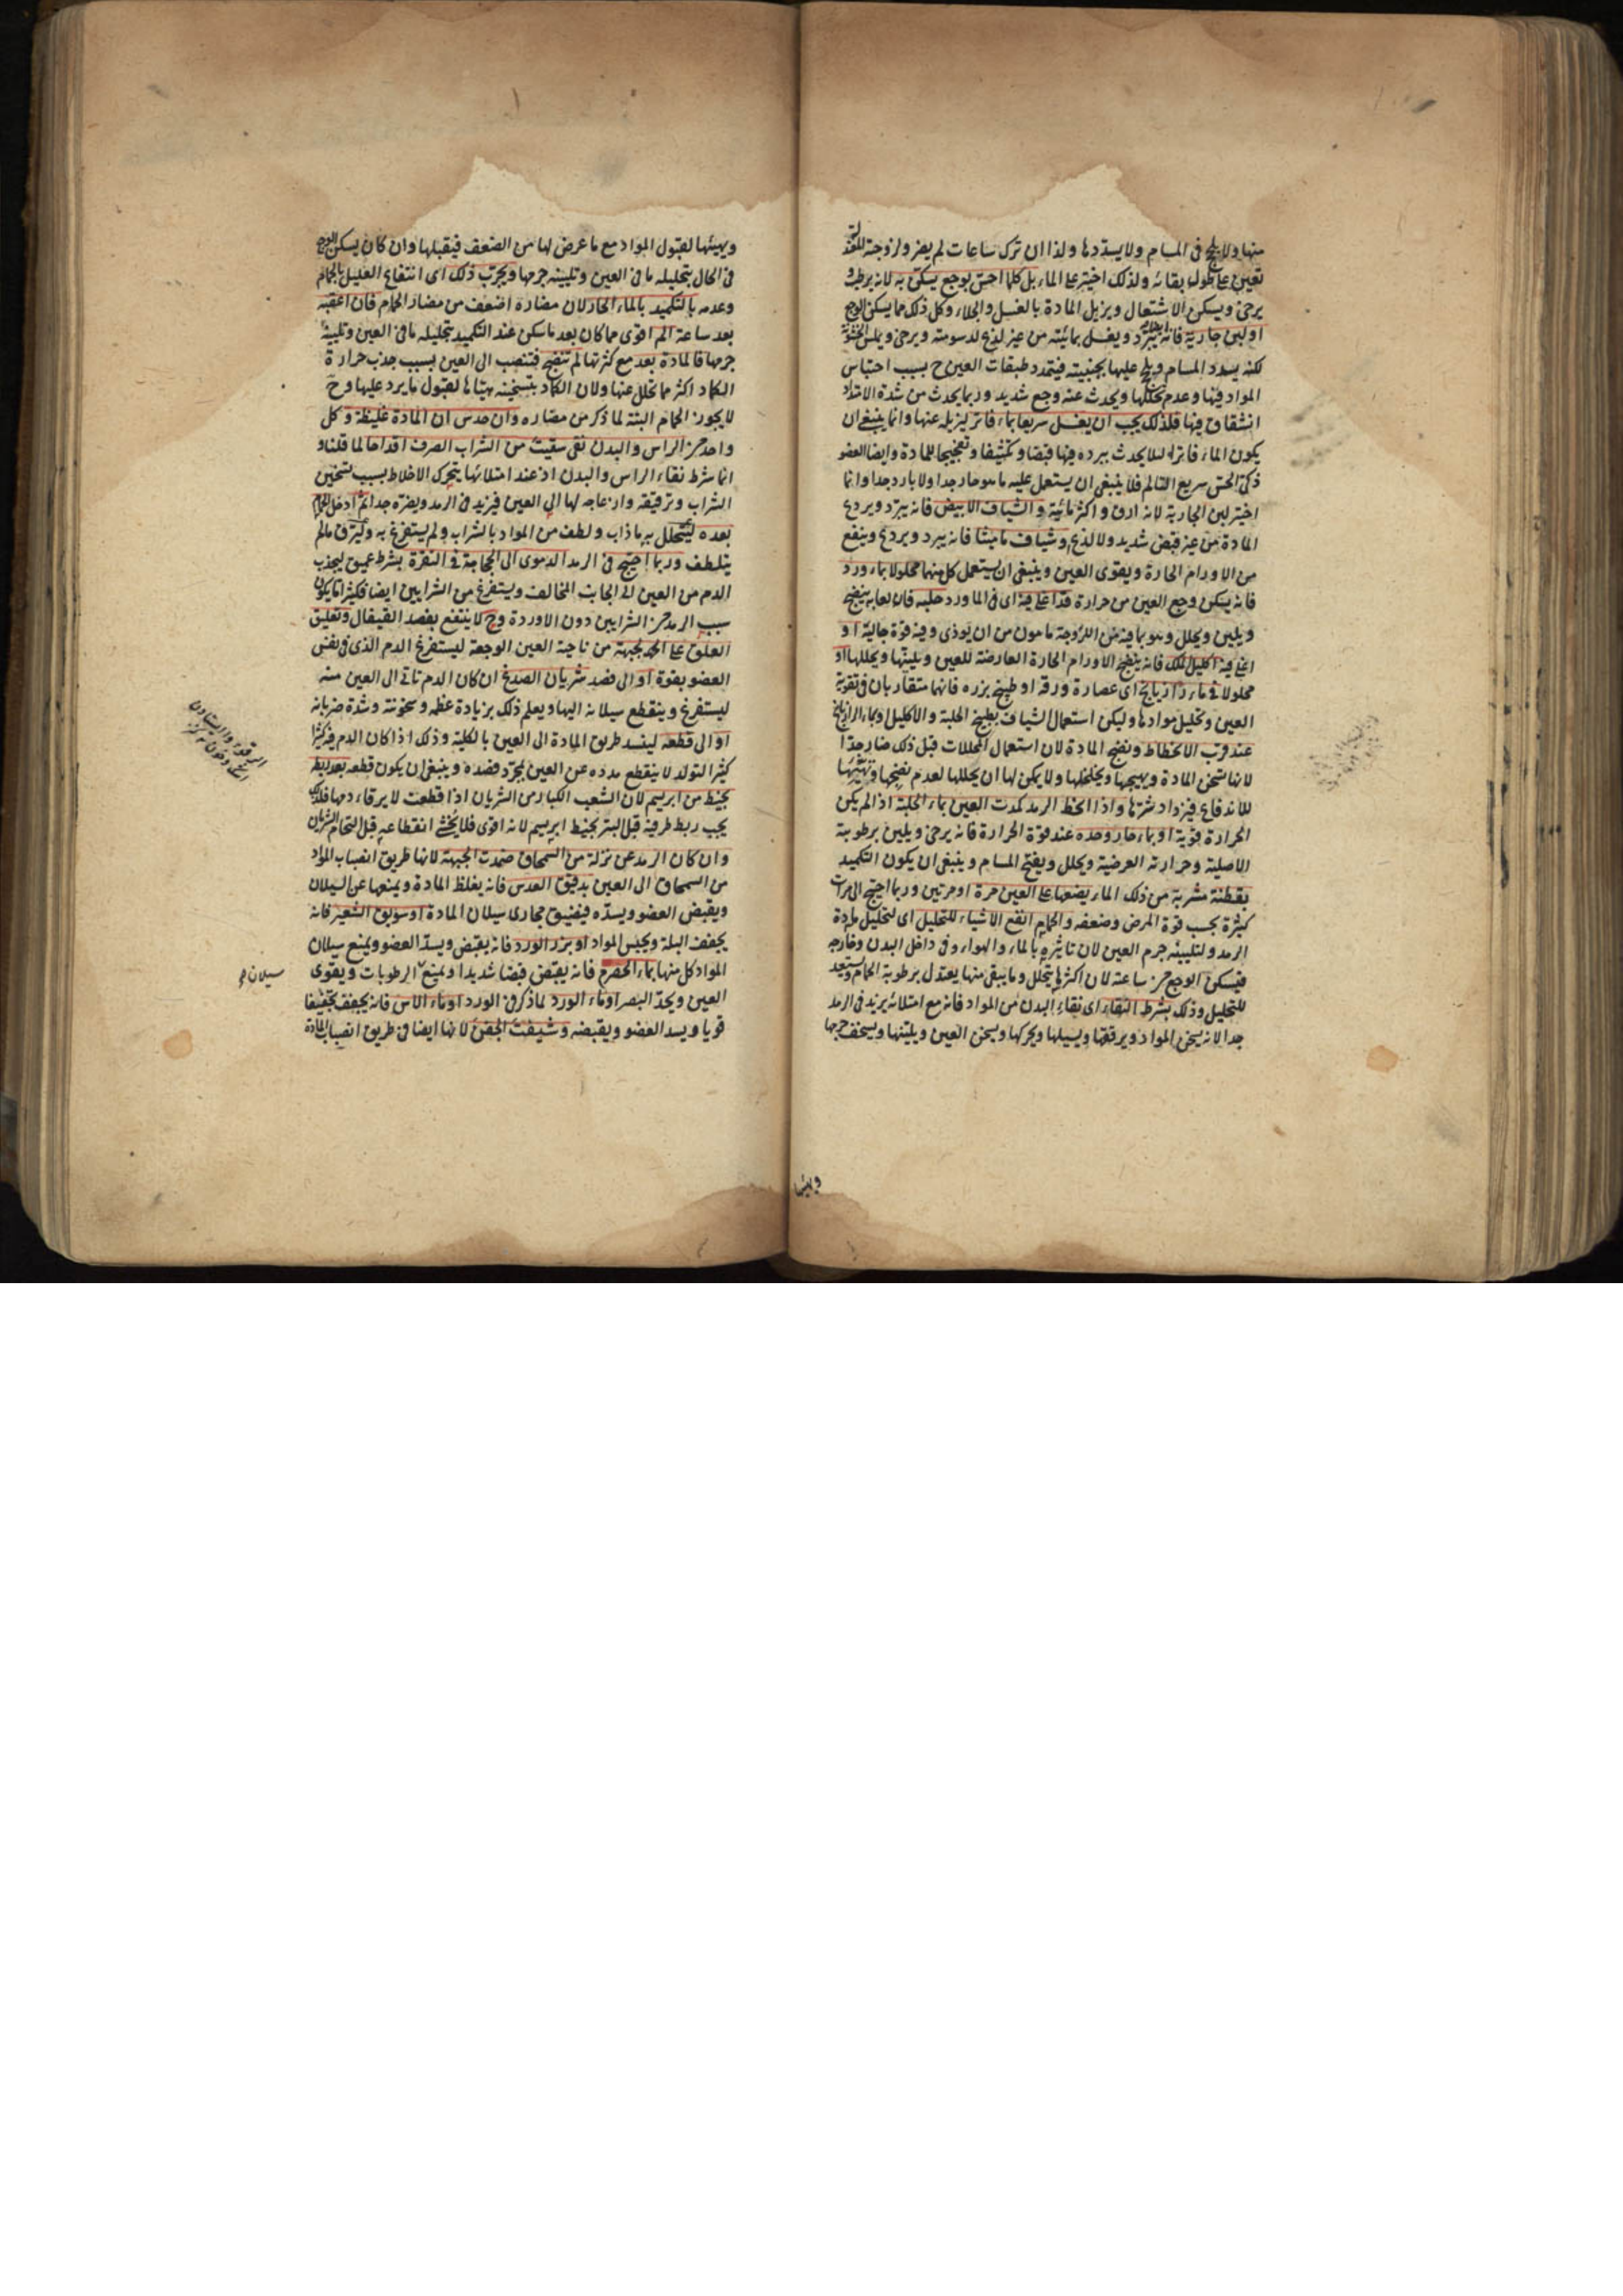 منها ولا يلج فى المسام ولا يسددها ولذا ان ترك ساعات لم يضر ولزوجته
تعين على طول بقائه ولذلك اختير على الماء بل كلما احس بوجع يسكن به لانه يرطب و
يرخى ويسكن الاشتعال ويزيل المادة بالغسل والجلاء وكل ذلك مما يسكن الوجع
او لبن جارية فانه يبرد ويغسل بمائيته من غير لذع لدسومته ويرخى ويملس الخشونة
لكنه يسدد المسام ويلج عليها بجبنيته فيتمدد طبقات العين ح بسبب احتباس
المواد فيها وعدم تحللها ويحدث عنه وجع شديد وربما يحدث من شدة الامتداد
انشقاق فيها فلذلك يجب ان يغسل سريعا بماء فاتر ليزيله عنها وانما ينبغى ان
يكون الماء فاترا لئلا يحدث ببرده فيها قبضا وتكثيفا وتفجيجا للمادة وايضا العضو
ذكى الحس سريع التالم فلا ينبغى ان يستعمل عليه ما هو حار جدا ولا بارد جدا وانما
اختير لبن الجارية لانه ارق واكثر مائية والشياف الابيض فانه يبرد ويردع
المادة من غير قبض شديد ولا لذع وشياف ماميثا فانه يبرد ويردع وينفع
من الاورام الحارة ويقوى العين وينبغى ان يستعمل كل منها محلولا بماء ورد
فانه يسكن وجع العين من حرارة قد اغلى فيه اى فى الماورد حلبه فان لعابه ينضج
ويلين ويحلل وهو بما فيه من اللزوجة مامون من ان يوذى وفيه قوة جالية او
اغلى فيه اكليل الملك فانه ينضج الاورام الحارة العارضة للعين ويلينها ويحللها او
محلولا فى ماء رازيانج اى عصارة ورقه او طبيخ بزره فانهما متقاربان فى تقوية
العين وتحليل موادها وليكن استعمال الشياف بطبيخ الحلبة والاكليل او بماء الرازيانج
عند قرب الانحطاط ونضج المادة لان استعمال المحللات قبل ذلك ضار جدا
لانها تسخن المادة ويهيجها ويخلخلها ولا يمكن لها ان يحللها لعدم نضجها وتهيئها
للاندفاع فيزداد شرها واذا انحط الرمد كمدت العين بماء الحلبة اذ الم يكن
الحرارة قوية او بماء حار وحده عند قوة الحرارة فانه يرخى ويلين برطوبته
الاصلية وحرارته العرضية ويحلل ويفتح المسام وينبغى ان يكون التكميد
بقطنة مشربة من ذلك الماء يضعها على العين مرة او مرتين وربما احتيج الى مرات
كثيرة بحسب قوة المرض وضعفه والحمام انفع الاشياء للتحليل اى لتحليل مادة
الرمد ولتليينه جرم العين لان تاثيره بالماء والهواء وفى داخل البدن وخارجه
فيسكن الوجع من ساعة لان اكثرها يتحلل وما يبقى منها يعتدل برطوبة الحمام ويستعد
للتحليل وذلك بشرط النقاء اى نقاء البدن من المواد فانه مع امتلائه يزيد فى الرمد
جدا لانه يسخن المواد ويرققها ويسيلها ويحركها ويسخن العين ويلينها ويسخف جرمها
ويهيئها
ويهيئها لقبول المواد مع ما عرض لها من الضعف فيقبلها وان كان يسكن الوجع
فى الحال بتحليله ما فى العين وتليينه جرمها ويجرب ذلك اى انتفاع العليل بالحمام
وعدمه بالتكميد بالماء الحار لان مضاره اضعف من مضار الحمام فان اعقبه
بعد ساعة الم اقوى مما كان بعد ما سكن عند التكميد بتحليله ما فى العين وتليينه
جرمها فالمادة بعد مع كثرتها لم تنضج فتنصب الى العين بسبب جذب حرارة
الكماد اكثر مما تحلل عنها ولان الكماد بتسخينه هيئاها لقبول ما يرد عليها وح
لا يجوز الحمام البتة لما ذكر من مضاره وان حدس ان المادة غليظة وكل
واحد من الراس والبدن نقى سقيت من الشراب الصرف اقداحا لما قلنا و
انما شرط نقاء الراس والبدن اذ عند امتلائها يتحرك الاخلاط بسبب تسخين
الشراب وترقيقه وازعاجه لها الى العين فيزيد فى الرمد ويضره جدا ثم ادخل الحمام
بعده ليتحلل به ما ذاب ولطف من المواد بالشراب ولم يستفرغ به وليرق ما لم
يتلطف وربما احتيج فى الرمد الدموى الى الحجامة فى النقرة بشرط عميق ليجذب
الدم من العين الى الجانب المخالف ويستفرغ من الشرايين ايضا فكثيرا ما يكون
سبب الرمد من الشرايين دون الاوردة وح لا ينتفع بفصد القيفال وتعليق
العلق على الجبهة من ناحية العين الوجعة ليستفرغ الدم الذى فى نفس
العضو بقوة او الى فصد شريان الصدغ ان كان الدم تاتى الى العين منه
ليستفرغ وينقطع سيلانه اليها ويعلم ذلك بزيادة عظمه وسخونته وشدة ضربانه
او الى قطعه لينسد طريق المادة الى العين بالكلية وذلك اذا كان الدم فيه كثيرا
كثير التولد لا ينقطع مدده عن العين بمجرد فصده وينبغى ان يكون قطعه بعد ربطه
بخيط من ابريسم لان الشعب الكبار من الشريان اذا قطعت لا يرقاء دمها فلذلك
يجب ربط طرفيه قبل البتر بخيط ابريسم لانه اقوى فلا يخشى انقطاعه قبل التحام الشريان
وان كان الرمد عن نزلة من السمحاق ضمدت الجبهة لانها طريق انصباب المواد
من السمحاق الى العين بدقيق العدس فانه يغلظ المادة ويمنعها عن السيلان
ويقبض العضو ويسده فيضيق مجارى سيلان المادة او سويق الشعير فانه
يجفف البلة ويحبس المواد او بزر الورد فانه يقبض ويسد العضو ويمنع سيلان
المواد كل منها بماء الحصرم فانه يقبض قبضا شديدا ويمنع الرطوبات ويقوى
العين ويحد البصر او ماء الورد لما ذكر فى الورد او ماء الاس فانه يجفف تجفيفا
قويا ويسد العضو ويقبضه وشيفت الجفن لانها ايضا فى طريق انصباب المادة
سيلان